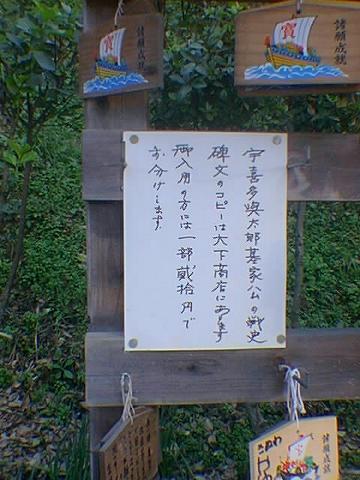 宇喜多與太郎基家公の戦史
碑文のコピーは大下商店にあります
御入用の方には一部貳拾円で
お分けします。
寳
諸願成就
寳
諸願成就
諸願成就